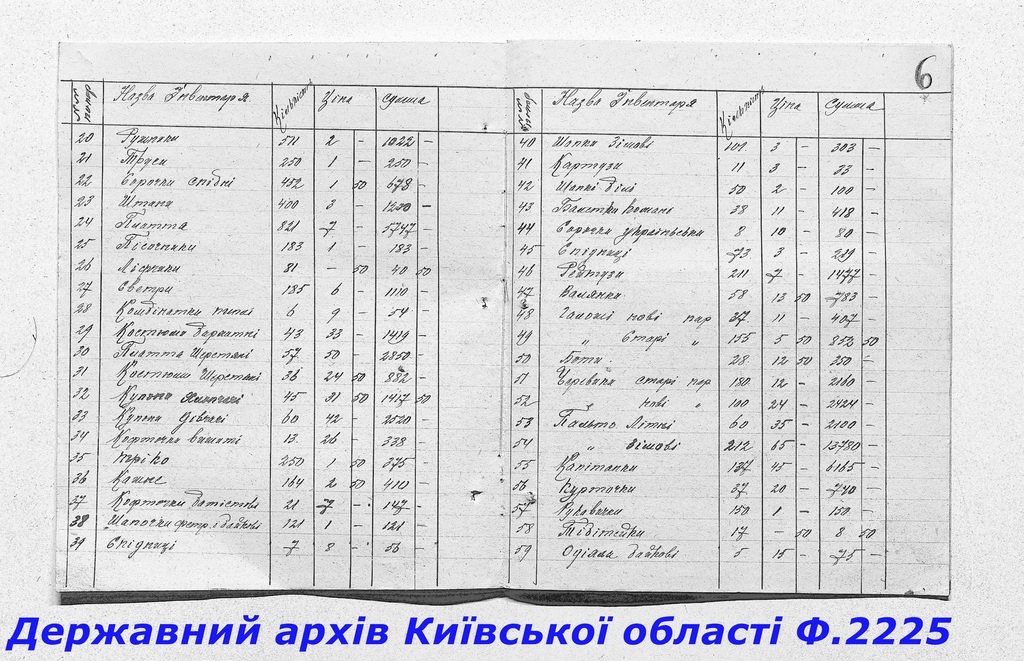 6
Назва Інвентаря Кількість Ціна Сумма
20 Рушники 511 2 - 1022 -
21 Труси 250 1 - 250 -
22 Сорочки спідні 452 1 50 678 -
23 Штани 400 3 - 1200 -
24 Плаття 821 7 - 5747 -
25 Пісочники 183 1 - 183 -
26 Ліфчики 81 - 50 40 50
27 Светри 185 6 - 1110 -
28 Комбінатки 6 9 - 54 -
29 Костюми 43 33 - 1419 -
30 Плаття Шерстяні 57 50 - 2850 -
31 Костюми Шерстяні 36 24 50 882 -
32 Купони 45 31 50 1417 50
33 Купони 60 42 - 2520 -
34 Кофточки вишиті 13 26 - 338 -
35 Тріко 250 1 50 375 -
36 Кашне 164 2 50 410 -
37 Кофточки батистові 21 7 - 147 -
38 Шапочки фетр. і байкові 121 1 - 121 -
39 Спідниці 7 8 - 56 -
Назва Інвентаря Кількість Ціна Сумма
40 Шапки Зімові 101 3 - 303 -
41 Картузи 11 3 - 33 -
42 Шапкі білі 50 2 - 100 -
43 38 11 - 418 -
44 Сорочки українськи 8 10 - 80 -
45 Спідниці 73 3 - 219 -
46 Рейтузи 211 7 - 1477 -
47 Валянки 58 13 50 783 -
48 Галоші нові пар 37 11 - 407 -
49 " Старі " 155 5 50 852 50
50 Боти 28 12 50 350 -
51 Черевики старі пар 180 12 - 2160 -
52 " нові " 100 24 - 2424 -
53 Пальто Літні 60 35 - 2100 -
54 " Зімові 212 65 - 13780 -
55 Капітанки 137 45 - 6165 -
56 Курточки 37 20 - 740 -
57 Рукавички 150 1 - 150 -
58 Тібітейки 17 - 50 8 50
59 Одіала байкові 5 15 - 75 -
Державний архів Київської області Ф.2225